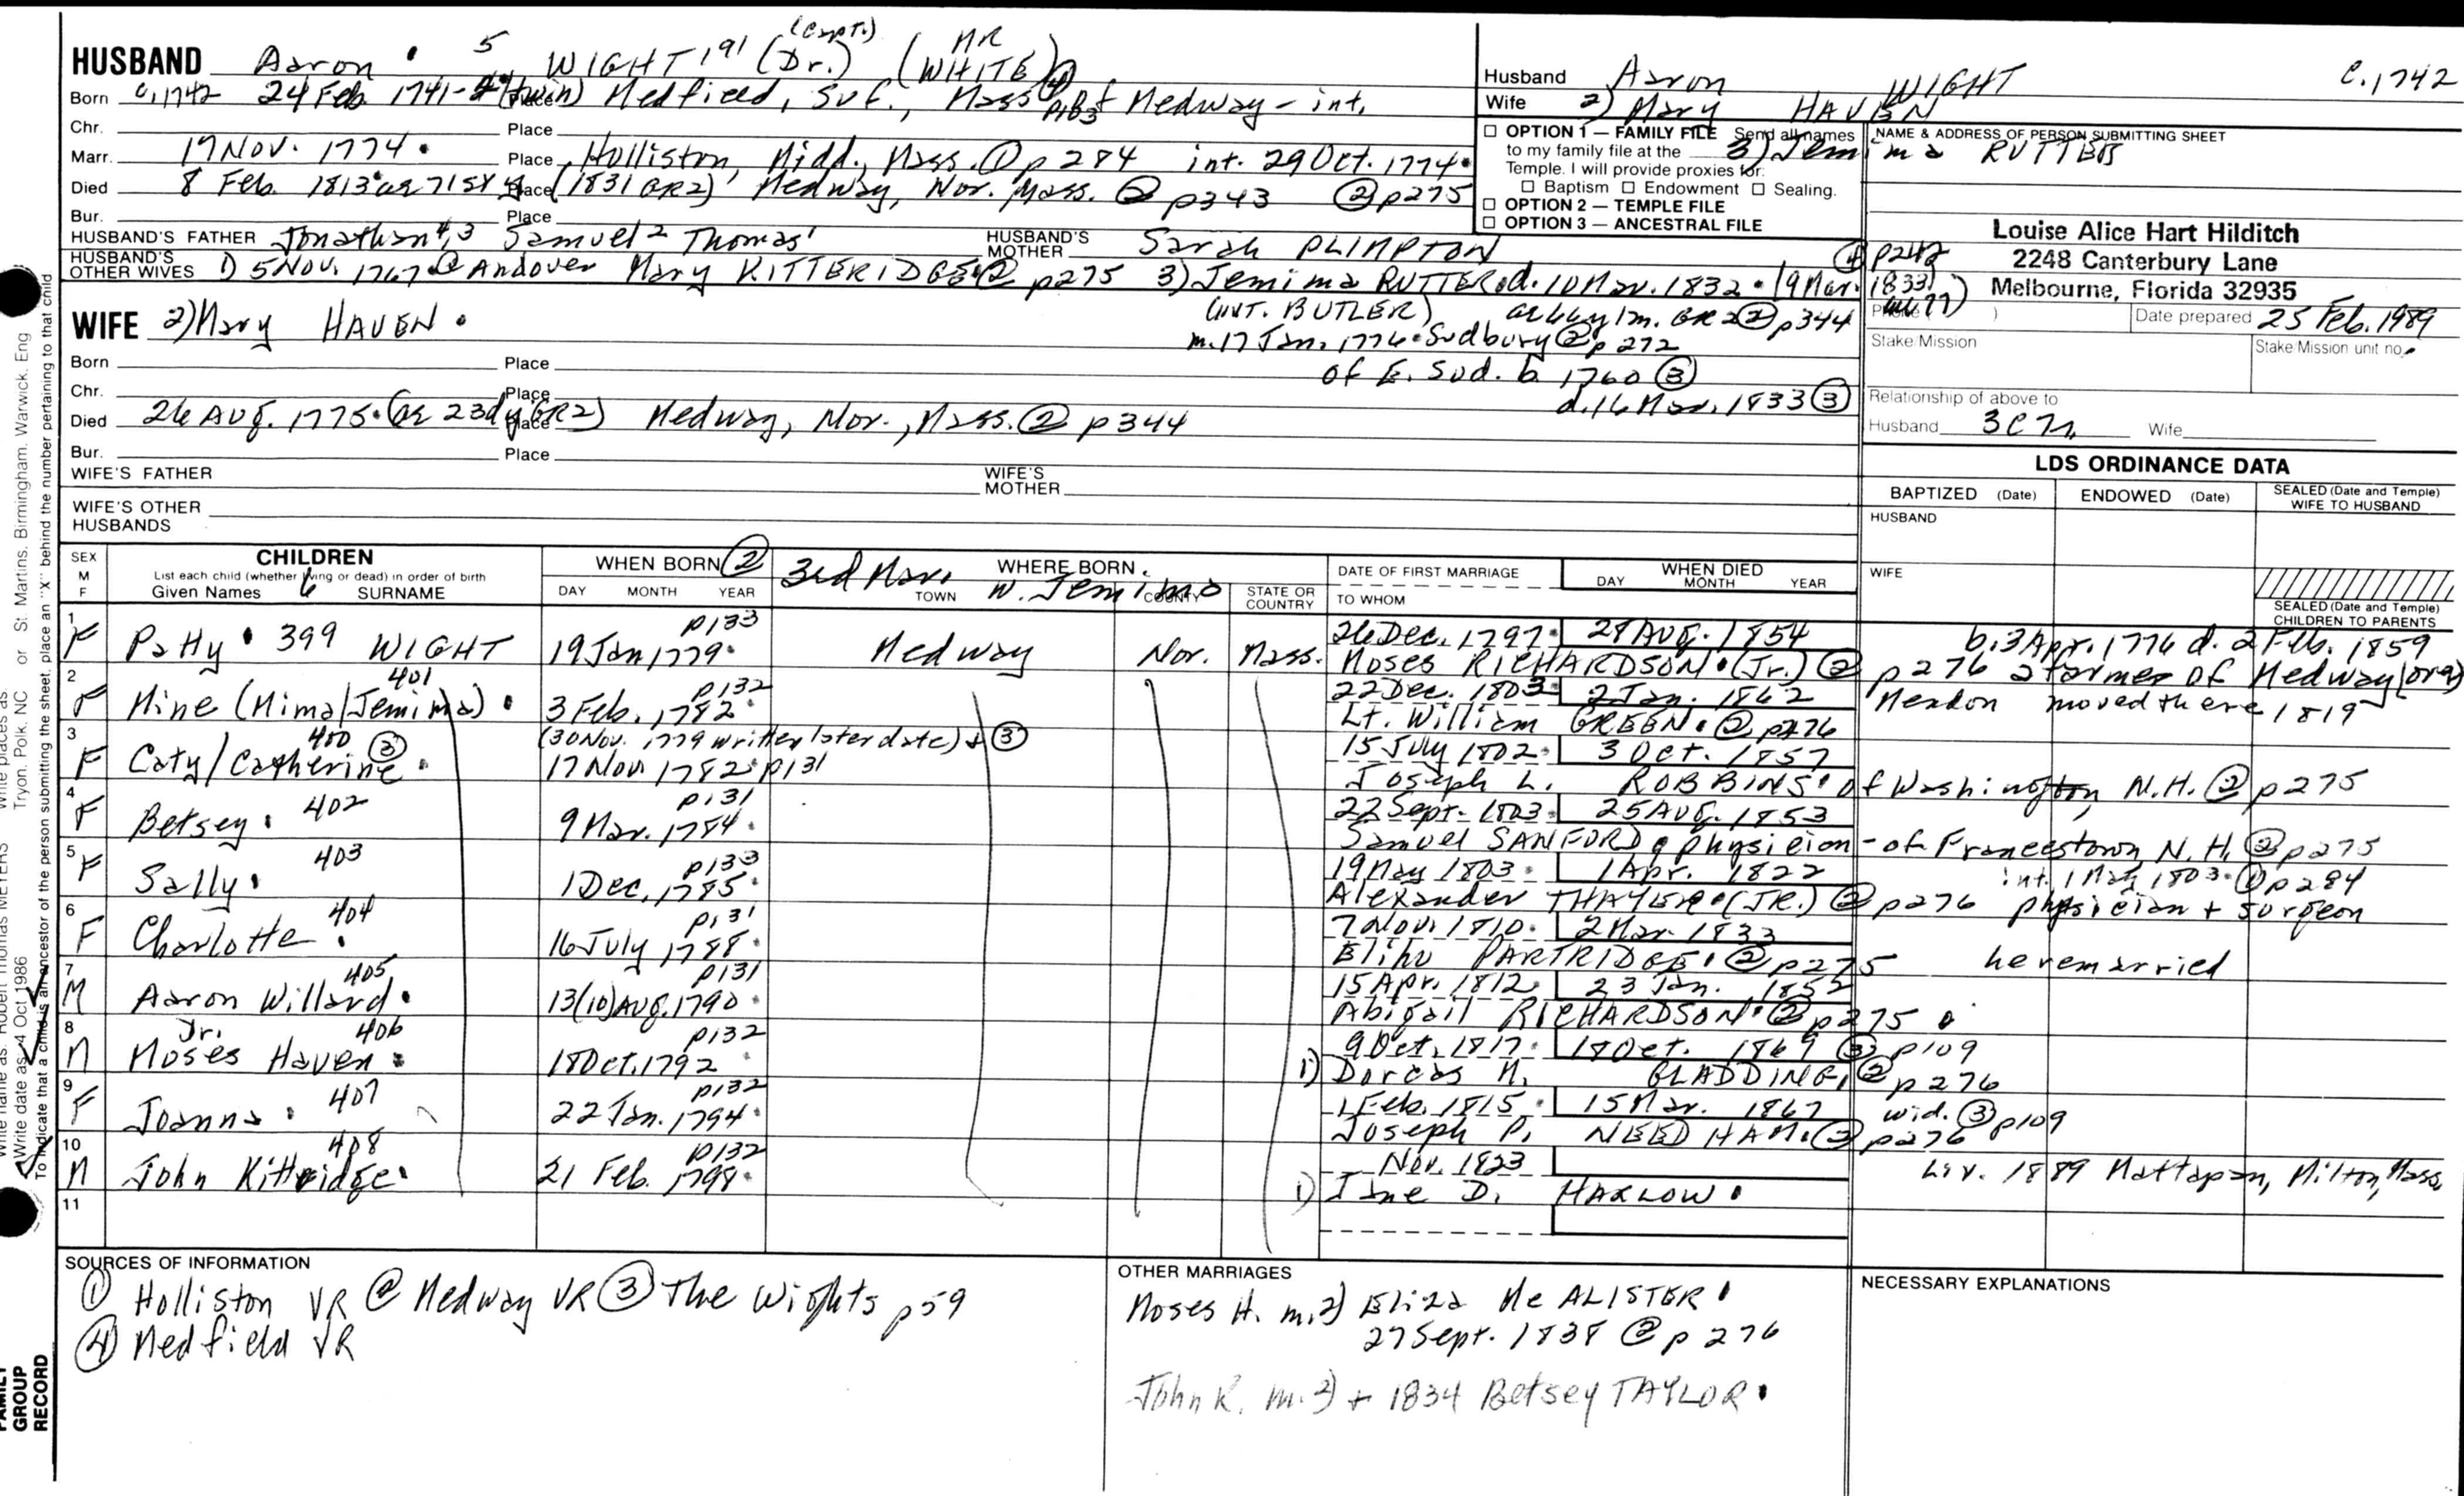 (Capt.)
HUSBAND Aaron 5 WIGHT 191 (Dr.) (WHITE) MR
Born c.1742 24 Feb. 1741-2 (twin) Place Medfield, Suf., Mass. ④ of Medway - int.
Chr. Place
Marr. 17 Nov. 1774. Place Holliston, Midd., Mass. ① p 284 int. 29 Oct. 1774.
Died 8 Feb. 1813 ae 71 sx y Place (1831 GR2) Medway, Nor. Mass. ② p343 ② p275
Bur. Place
HUSBAND'S FATHER Jonathan 4,3 Samuel 2 Thomas 1 HUSBAND'S MOTHER Sarah PLIMPTON
HUSBAND'S OTHER WIVES 1) 5 Nov. 1767 @ Andover Mary KITTERIDGE ② p275 3) Jemima RUTTER d. 10 Mar. 1832. (9 Mar. 1833)
④ p242
(INT. BUTLER) ae 44y 1m. GR2 ② p344
m. 17 Jan. 1776. Sudbury ② p 272
of E. Sud. b. 1760 ③
d. 16 Mar. 1833 ③
WIFE 2) Mary HAVEN.
Born Place
Chr. Place
Died 26 Aug. 1775. (ae 23d y GR2) Place Medway, Nor., Mass. ② p344
Bur. Place
WIFE'S FATHER WIFE'S MOTHER
WIFE'S OTHER HUSBANDS
Husband Aaron WIGHT c.1742
Wife 2) Mary HAVEN
3) Jemima RUTTER
OPTION 1 — FAMILY FILE Send all names
to my family file at the
Temple. I will provide proxies for:
Baptism Endowment Sealing.
OPTION 2 — TEMPLE FILE
OPTION 3 — ANCESTRAL FILE
NAME & ADDRESS OF PERSON SUBMITTING SHEET
Louise Alice Hart Hilditch
2248 Canterbury Lane
Melbourne, Florida 32935
Phone ( ) Date prepared 25 Feb. 1989
Stake/Mission Stake/Mission unit no.
Relationship of above to
Husband 3C7r Wife
LDS ORDINANCE DATA
BAPTIZED (Date) ENDOWED (Date) SEALED (Date and Temple) WIFE TO HUSBAND
HUSBAND
WIFE
SEALED (Date and Temple) CHILDREN TO PARENTS
SEX M F
CHILDREN
List each child (whether living or dead) in order of birth
Given Names 6 SURNAME
WHEN BORN ② DAY MONTH YEAR
3rd Mar. w. Jemima
WHERE BORN TOWN COUNTY STATE OR COUNTRY
DATE OF FIRST MARRIAGE
TO WHOM
WHEN DIED DAY MONTH YEAR
1 F Patty. 399 WIGHT 19 Jan 1779. p133 Medway Nor. Mass. 26 Dec. 1797. 28 Aug. 1854 b. 3 Apr. 1776 d. 2 Feb. 1859
Moses RICHARDSON. (Jr.) ② p276 a farmer of Medway
2 F Mine (Mima/Jemima). 401 3 Feb. 1782. p132 22 Dec. 1803 2 Jan. 1862 Mendon moved there 1819
Lt. William GREEN. ② p276
3 F Caty/Catherine. 400 ③ (30 Nov. 1779 written later date) + ③ 17 Nov. 1782. p131 15 July 1802. 3 Oct. 1857
Joseph L. ROBBINS. of Washington, N.H. ② p275
4 F Betsey. 402 9 Mar. 1784. p131 22 Sept. 1803. 25 Aug. 1853
Samuel SANFORD. physician - of Francestown, N.H. ② p275
5 F Sally. 403 1 Dec. 1785. p133 19 May 1803. 1 Apr. 1822 int. 1 May 1803. ① p284
Alexander THAYER. (JR.) ② p276 physician + surgeon
6 F Charlotte. 404 16 July 1788. p131 7 Nov. 1810. 2 Mar. 1833
Elihu PARTRIDGE. ② p275 he remarried
7 M Aaron Willard. 405 13(10) Aug. 1790. p131 15 Apr. 1812. 23 Jan. 1852
Abigail RICHARDSON. ② p275
8 M Moses Haven. Jr. 406 18 Oct. 1792. p132 9 Oct. 1817. 18 Oct. 1869 ③ p109
1) Dorcas M. GLADDING. ② p276
9 F Joanna. 407 22 Jan. 1794. p132 1 Feb. 1815. 15 Mar. 1867 wid. ③ p109
Joseph P. NEEDHAM. ② p276
10 M John Kittridge. 408 21 Feb. 1798. p132 Nov. 1823 Liv. 1889 Mattapan, Milton, Mass.
1) Jane D. HARLOW.
11
SOURCES OF INFORMATION
① Holliston VR ② Medway VR ③ The Wights p59
④ Medfield VR
OTHER MARRIAGES
Moses H. m. 2) Eliza McALISTER.
27 Sept. 1838 ② p 276
John K. m. 2) + 1834 Betsey TAYLOR.
NECESSARY EXPLANATIONS
Write name as: Robert Thomas MEYERS Write places as: Tryon, Polk, NC or St. Martins, Birmingham, Warwick, Eng
Write date as: 4 Oct 1986
To indicate that a child is an ancestor of the person submitting the sheet, place an "X" behind the number pertaining to that child
FAMILY GROUP RECORD